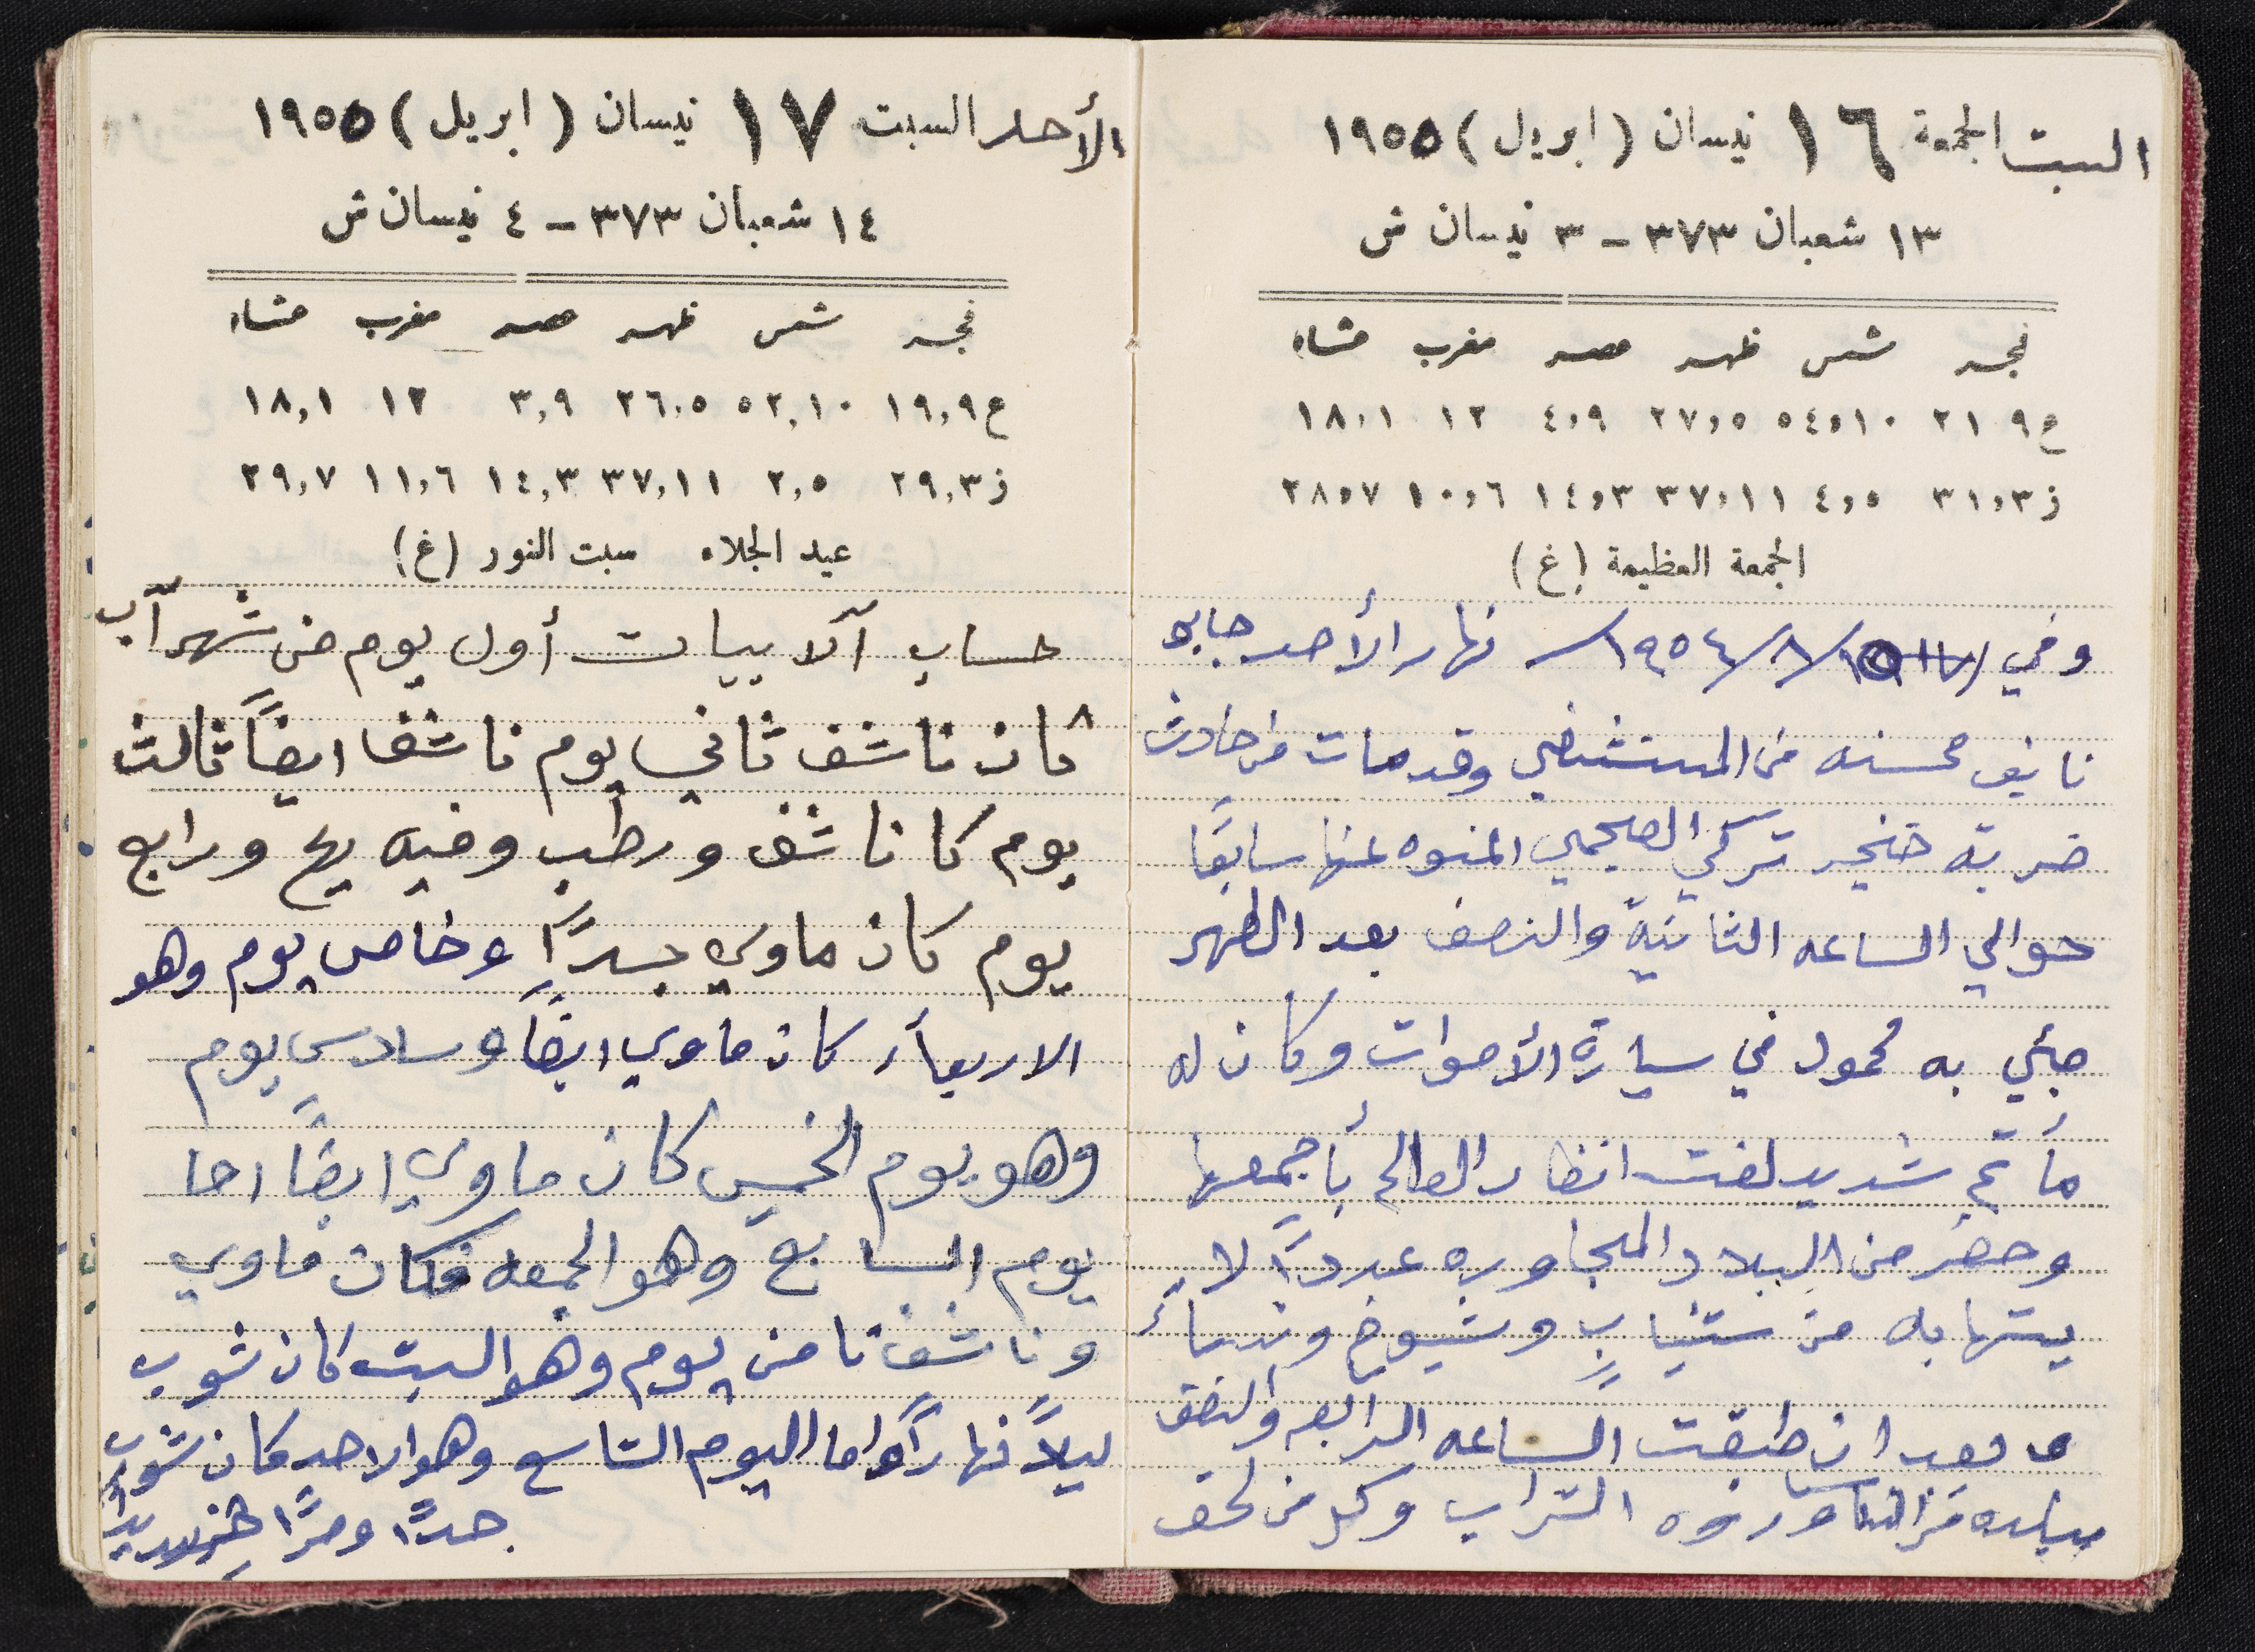 السبت الجمعة ١٦ نيسان (ابريل) ١٩٥٥
١٣ شعبان ٣٧٣ - ٣ نيسان ش
فجر شمس ظهر عصر مغرب عشاء
ع ٩ ٢١ ٥٤،١٠ ٢٧،٥ ٤،٩ ١٢ ١٨،١
ز ٣١،٣ ٤،٥ ٣٧،١١ ١٤،٣ ١٠،٦ ٢٨،٧
الجمعة العظيمة (غ)
وفي ١٩٥٤/٨/١٥ نهار الأحد جابو
نايف محسنه من المستشفى وقد مات من حادث
ضربة خنجر تركي المنوه عنها سابقًا
حوالي الساعه الثانية والنصف بعد الظهر
جئي به محمول في سيارة الأموات وكان له
مأتم شديد لفت انظار العالم بأجمعها
وحضر من البلاد المجاوره عددًا لا
يستهابه من ستياب وشيوخ ونساءً
وبعد ان طبقت الساعه الرابعه والنصف
التراب وكل من لحق
الأحد السبت ١٧ نيسان (ابريل) ١٩٥٥
١٤ شعبان ٣٧٣ - ٤ نيسان ش
فجر شمس ظهر عصر مغرب عشاء
ع ١٩،٩ ٥٢،١٠ ٢٦،٥ ٣،٩ ١٢ ١٨،١
ز ٢٩،٣ ٢،٥ ٣٧،١١ ١٤،٣ ١١،٦ ٢٩،٧
عيد الجلاء سبت النور (غ)
حساب آلابيات أول يوم من شهر آب
كان ناشف ثاني يوم ناشف ايضًا ثالث
يوم كا ناشف ورطب وفيه ريح ورابع
يوم كان ماوي جدًا وخامس يوم وهو
الاربعاء كان ماوي ايضًا وسادس يوم
وهو يوم الخميس كان ماوي ايضًا اما
يوم السابع وهو الجمعه فكان ماوي
وناشف ثامن يوم وهو السبت كان شوب
ليلاً نهارًا واما اليوم التاسع وهو الاحد كان شوب
جدًا وحرًا